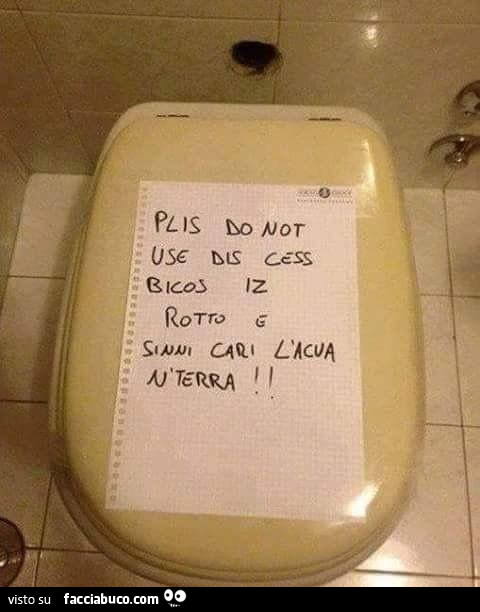 PLIS DO NOT
USE DIS CESS
BICOS IZ
ROTTO E
SINNI CARI L'ACUA
N'TERRA !!
visto su facciabuco.com